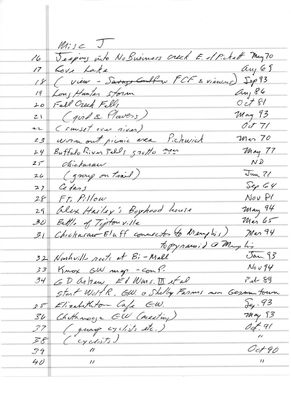 Misc J
16 Jeeping into No Business creek E. of Pickett May 70
17 Cove Lake Aug 69
18 ( view - FCF & viewers) Sep 93
19 Long Hunter storm Aug 86
20 Fall Creek Falls Oct 81
21 ( girl & flowers) May 93
22 ( sunset over river) Oct 71
23 worn out picnic area Pickwick Mar 70
24 Buffalo River Falls grotto May 77
25 Chickasaw ND
26 ( group on trail) Jun 71
27 Cedars Sep 64
28 Ft. Pillow Nov 81
29 Alex Haley's Boyhood house May 94
30 Battle of Tiptonville Mar 65
31 Chickasaw Bluff connector to Memphis) Mar 94
to pyramid @ Memphis
32 Nashville reets at Bi-Mall Jan 93
33 Knox GW map - comp. Nov 94
34 G D Ed Wms. III et al Feb 89
start Wolf R. GW @ Shelby Farms near Germantown
35 Elizabethton Cafe GW. Sep. 93
36 Chattanooga GW (meeting) May 93
37 ( group cyclists etc.) Oct. 91
38 ( cyclists) "
39 " Oct 90
40 " "